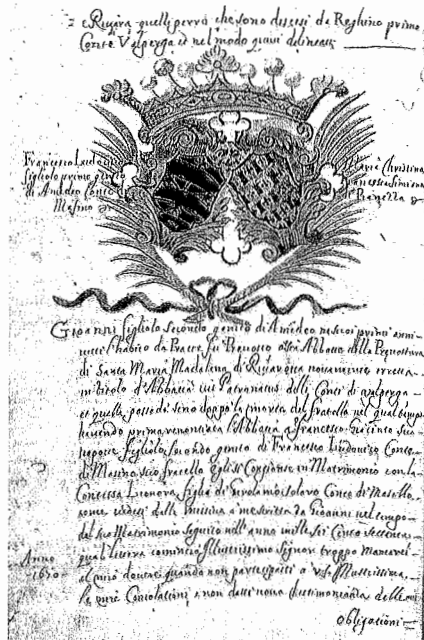 e Rivara quelli perrò che sono discesi da Reghino primo
Conte Valperga et nel modo quivi delineati
Francesco Ludovico
figliolo primo genito
di Amedeo Conte
Masino
Maria Christina
Francesca Simiana
Pianezza
Gioanni figliolo secondo genito di Amedeo ne suoi primi anni
l'habito da Prete fu Prevosto Abbate della Prepositura
di Santa Maria Madalena di novamente erretta
in titolo d'Abbatia Patronatus delli Conti di Valperga
et quella possedi sino doppo la morte del fratello nel qual tempo
havendo prima renontiata l'Abbatia a Francesco Giacinto suo
nepote figliolo secondo genito di Francesco Ludovico Conte
di Masino suo fratello egli si congionse in Matrimonio con la
Contessa Leonora figlia di Gerolamo Solaro Conte di
dalla missiva a me scritta da Gioanni nel tempo
del suo Matrimonio seguito nell'anno mille sei cento settanta
qual littera comincia Illustrissimo Signor troppo mancarei
al mio dovere quando non participassi a V.S. Illustrissima
le mie e non dassi nova testimonianza delle mie
Anno
1670
obligationi